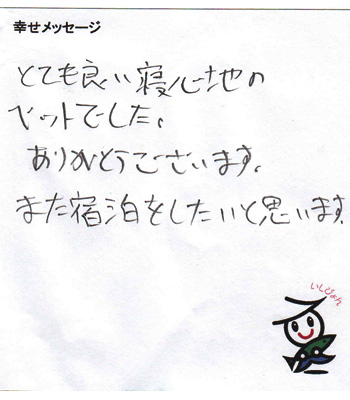 幸せメッセージ
とても良い寝心地の
ベットでした。
ありがとうございます。
また宿泊をしたいと思います
いしぴょん